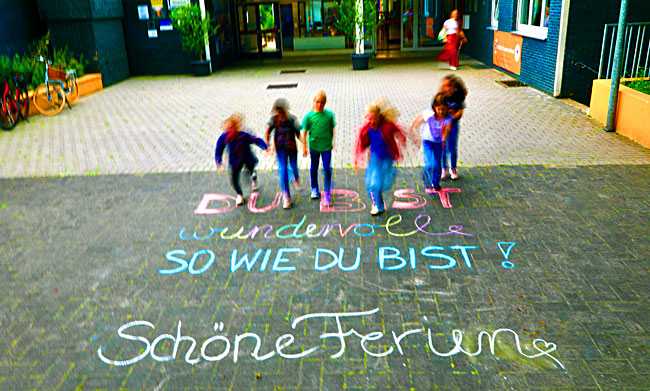 DU BIST
wundervolle
SO WIE DU BIST!
Schöne Ferien